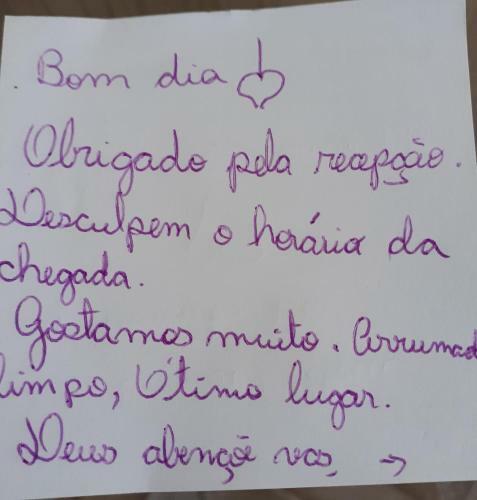 . Bom dia
Obrigado pela recepção.
Desculpem o horária da
chegada.
Gostamos muito. Arrumad
limpo, Útimo lugar.
Deus abençõe vos →